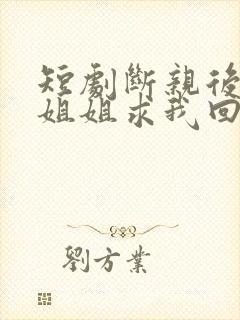 短劇斷親後
姐姐求我回
劉方業